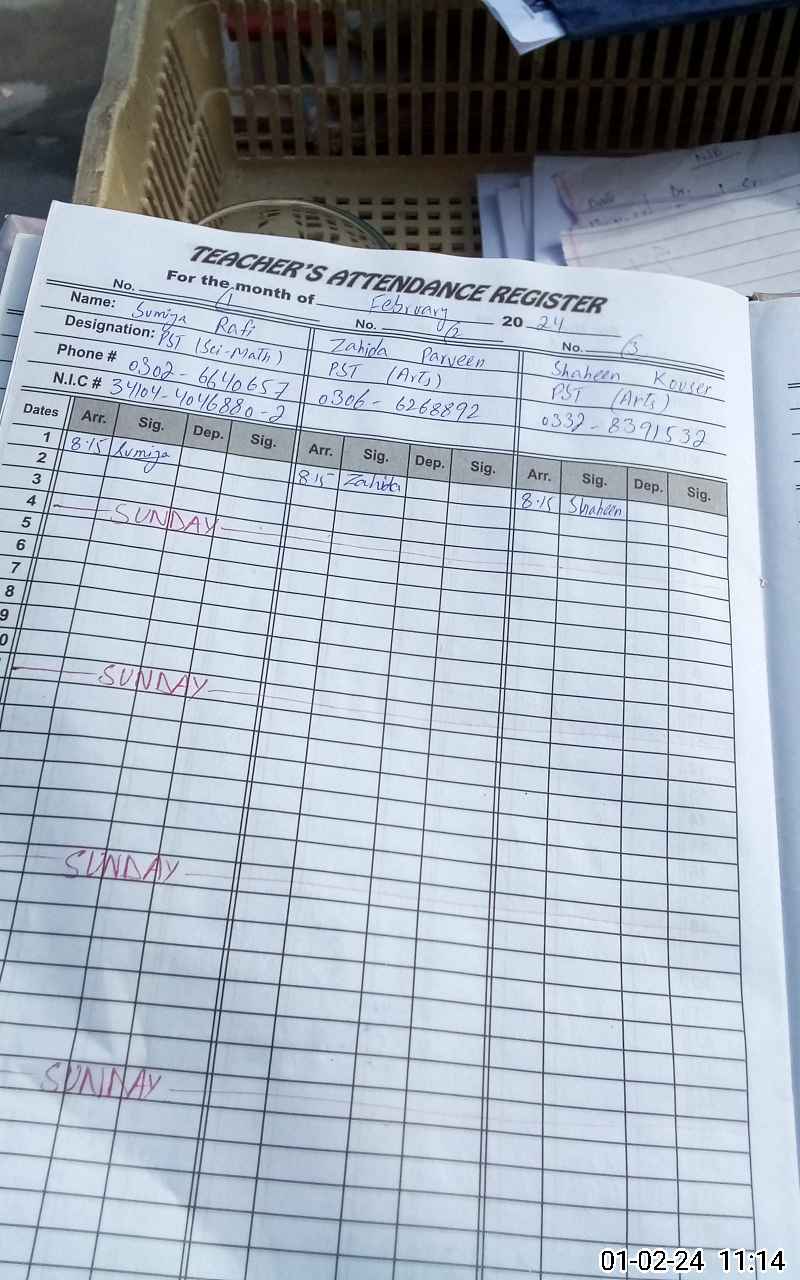 TEACHER'S ATTENDANCE REGISTER
For the month of February 20 24
No. 1 No. 2 No. 3
Name: Sumiza Rafi Zahida Parveen Shaheen Kouser
Designation: PST (Sci-Math) PST (Arts) PST (Arts)
Phone # 0302-6640657 0306-6268892 0332-8391532
N.I.C # 34104-4046880-2
Dates Arr. Sig. Dep. Sig. Arr. Sig. Dep. Sig. Arr. Sig. Dep. Sig.
1 8.15 Sumiza 8.15 Zahida 8.15 Shaheen
2
3
4 SUNDAY
5
6
7
8
9
0
SUNDAY
SUNDAY
SUNDAY
01-02-24 11:14